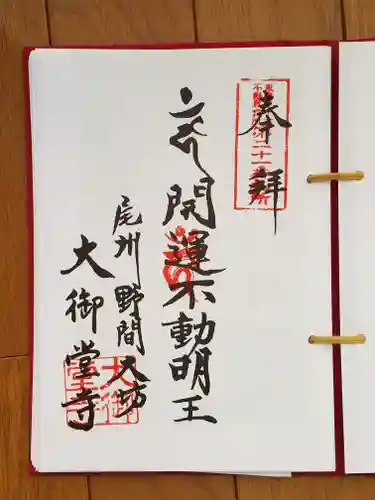 奉拝
開運不動明王
尾州野間大坊
大御堂寺